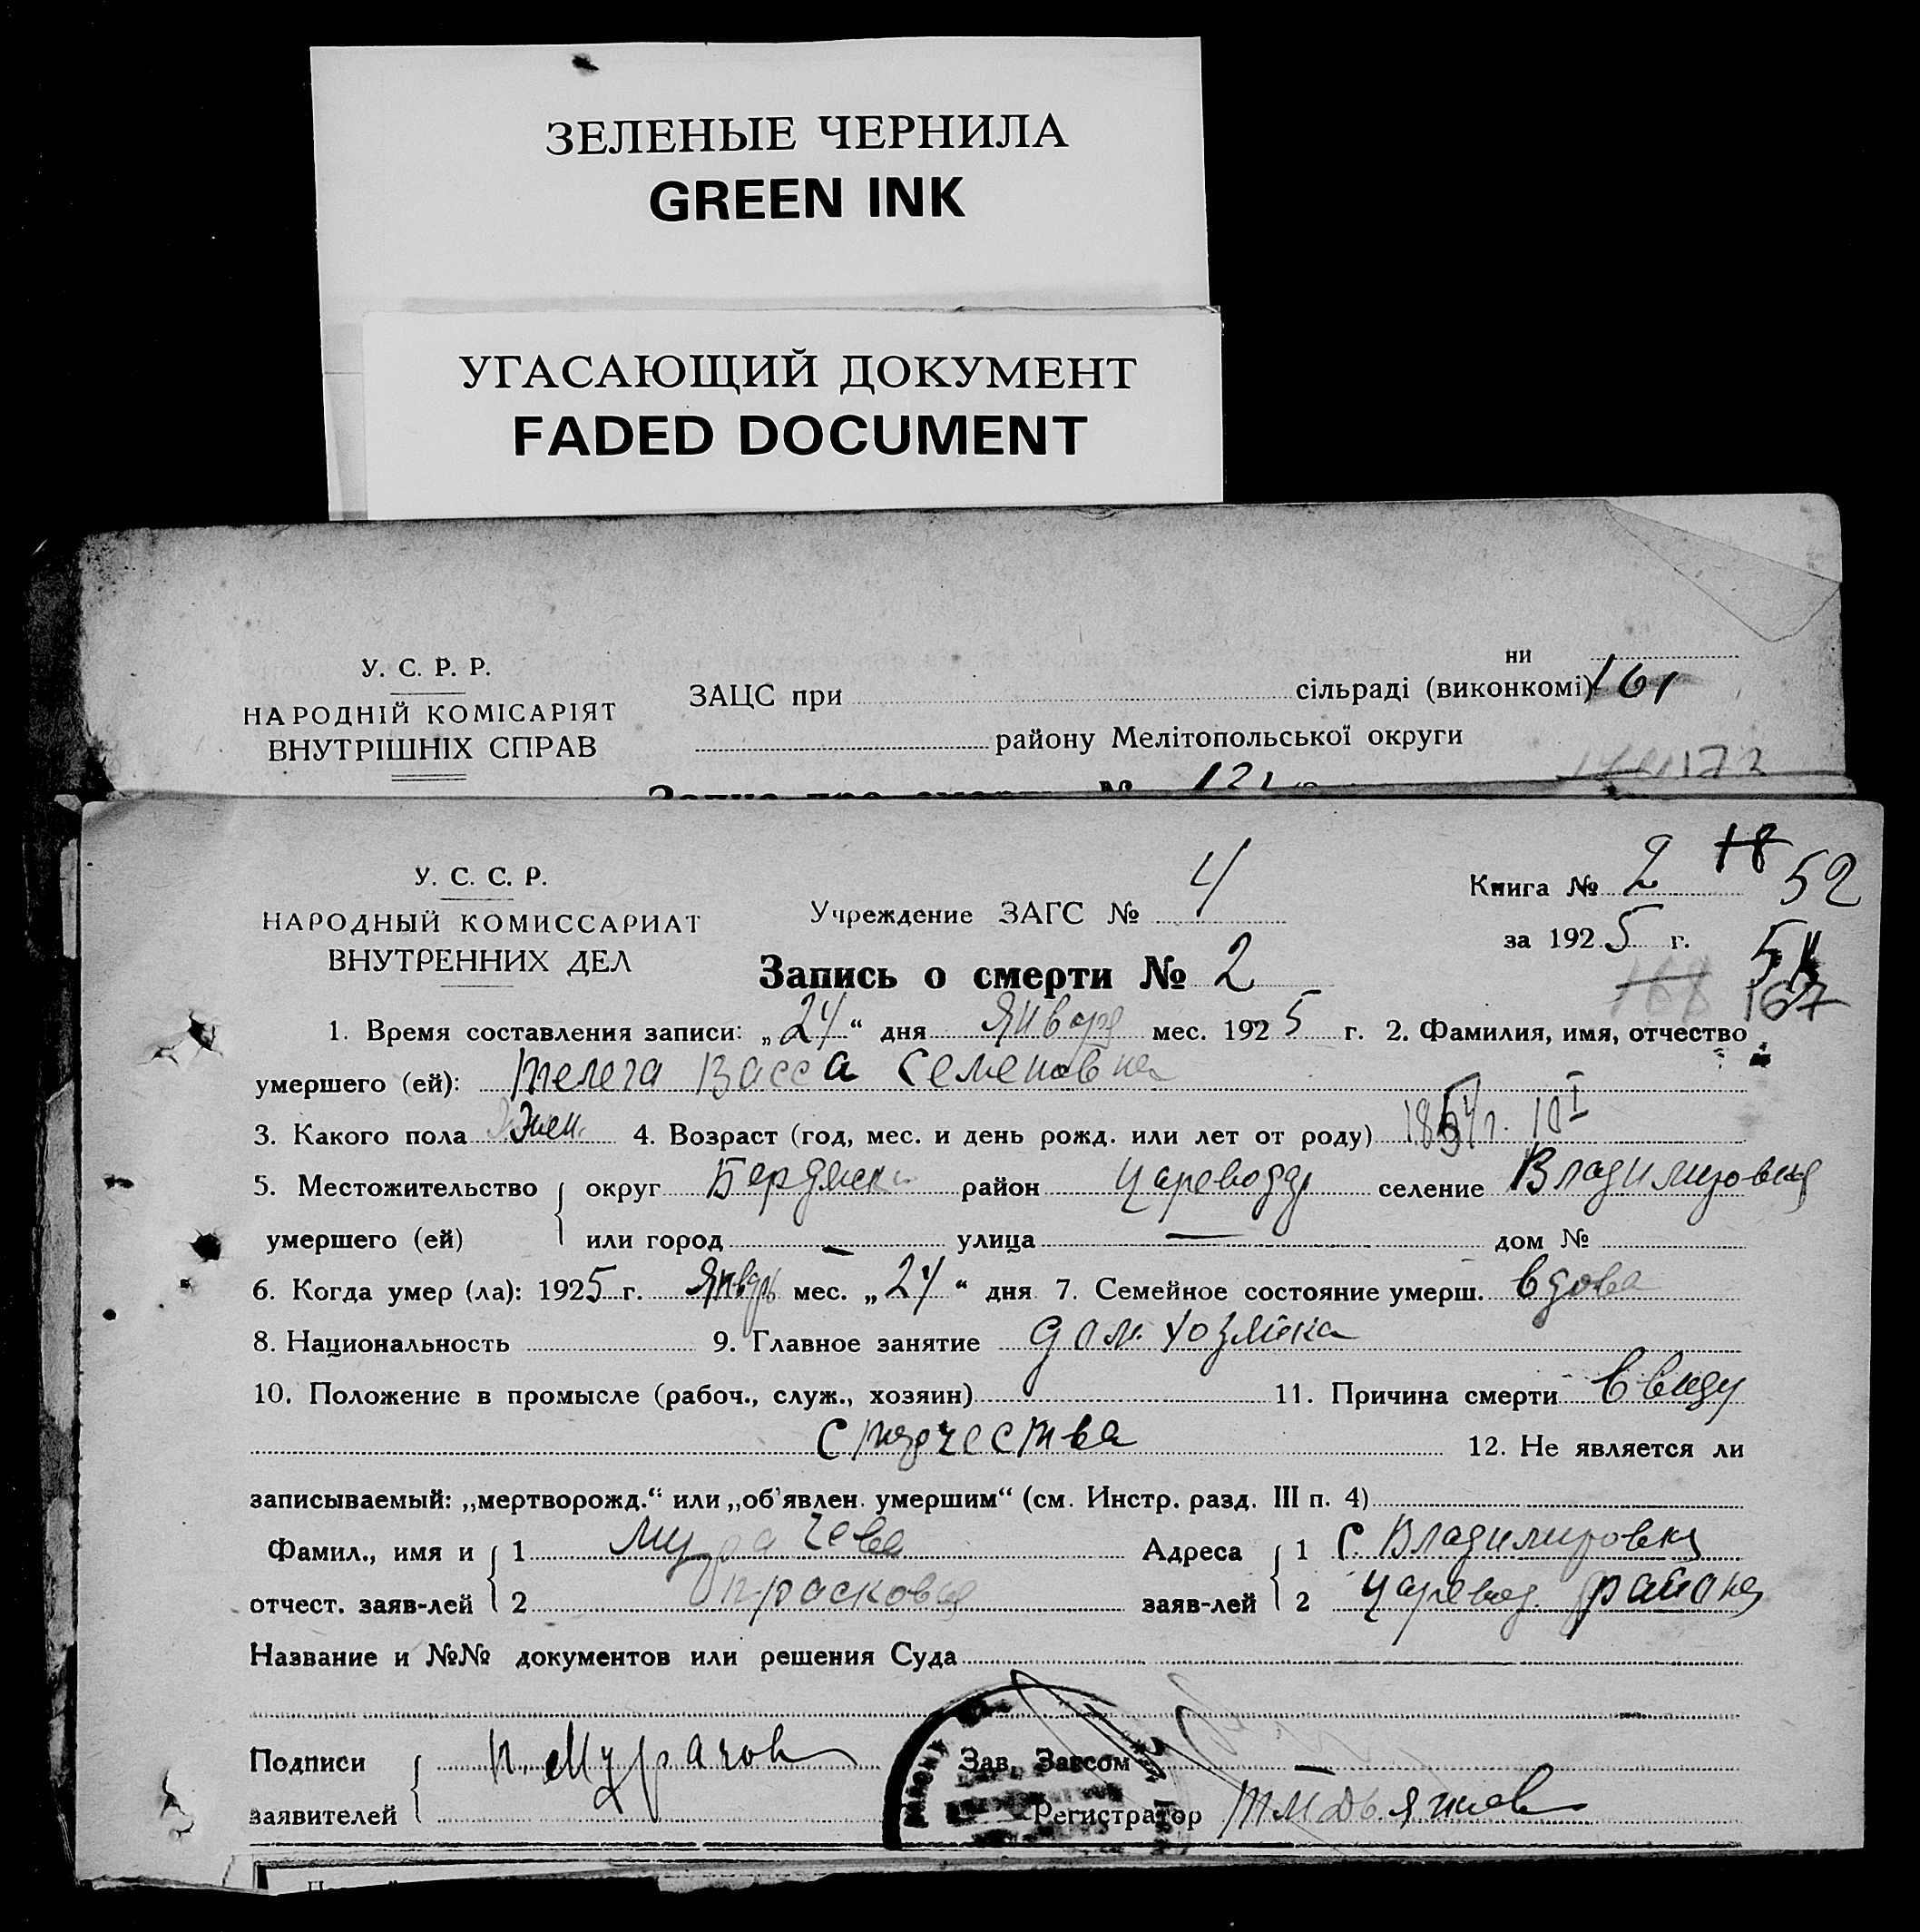 ЗЕЛЕНЫЕ ЧЕРНИЛА
GREEN INK
УГАСАЮЩИЙ ДОКУМЕНТ
FADED DOCUMENT
У. С. Р. Р.
НАРОДНІЙ КОМІСАРІЯТ
ВНУТРІШНІХ СПРАВ
ни
ЗАЦС при сільраді (виконкомі) 161
району Мелітопольської округи
173
У. С. С. Р.
НАРОДНЫЙ КОМИССАРИАТ
ВНУТРЕННИХ ДЕЛ
Учреждение ЗАГС № 4
Книга № 2 18 52
за 1925 г.
Запись о смерти № 2
168 167
1. Время составления записи: „24“ дня Января мес. 1925 г. 2. Фамилия, имя, отчество
умершего (ей): Телега Васса Семеновна
3. Какого пола жен. 4. Возраст (год, мес. и день рожд. или лет от роду)
5. Местожительство округ Бердянск район Царевод селение Владимировка
умершего (ей) или город — улица — дом №
6. Когда умер (ла): 1925 г. Январь мес. „24“ дня 7. Семейное состояние умерш. вдова
8. Национальность 9. Главное занятие дом. хозяйка
10. Положение в промысле (рабоч., служ., хозяин) 11. Причина смерти Ввиду
старчества 12. Не является ли
записываемый: „мертворожд.“ или „об'явлен. умершим“ (см. Инстр. разд. III п. 4)
Фамил., имя и 1 Мурачева Адреса 1 с. Владимировка
отчест. заяв-лей 2 Прасковья заяв-лей 2 Царевод. района
Название и №№ документов или решения Суда
Подписи П. Мурачов Зав. Загсом
заявителей Регистратор